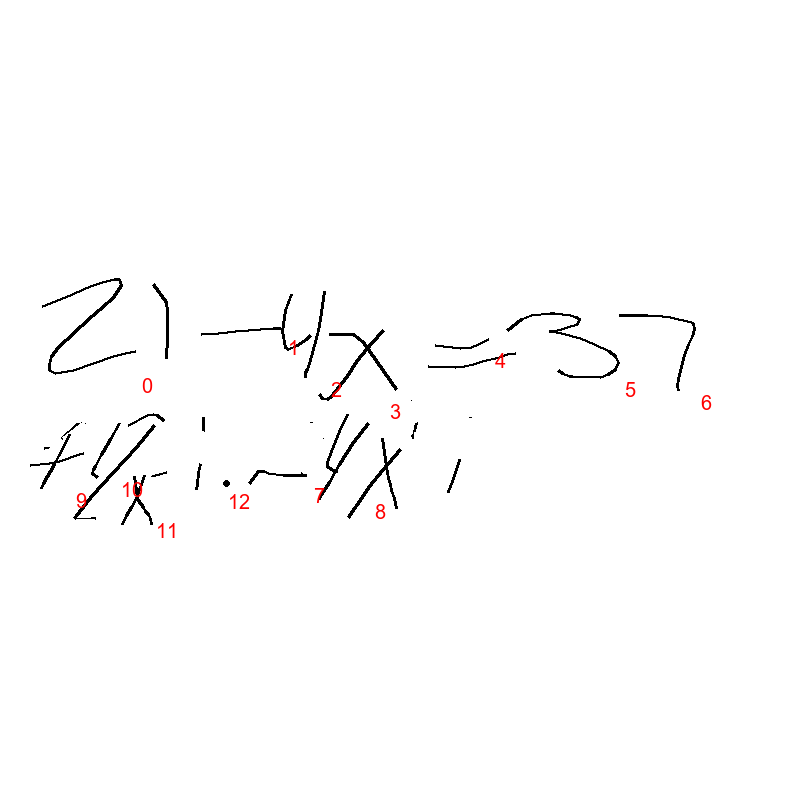 21 - 4x = 37
0 1 2 3 4 5 6
+ 4x - 4x
9 10 11 12 7 8